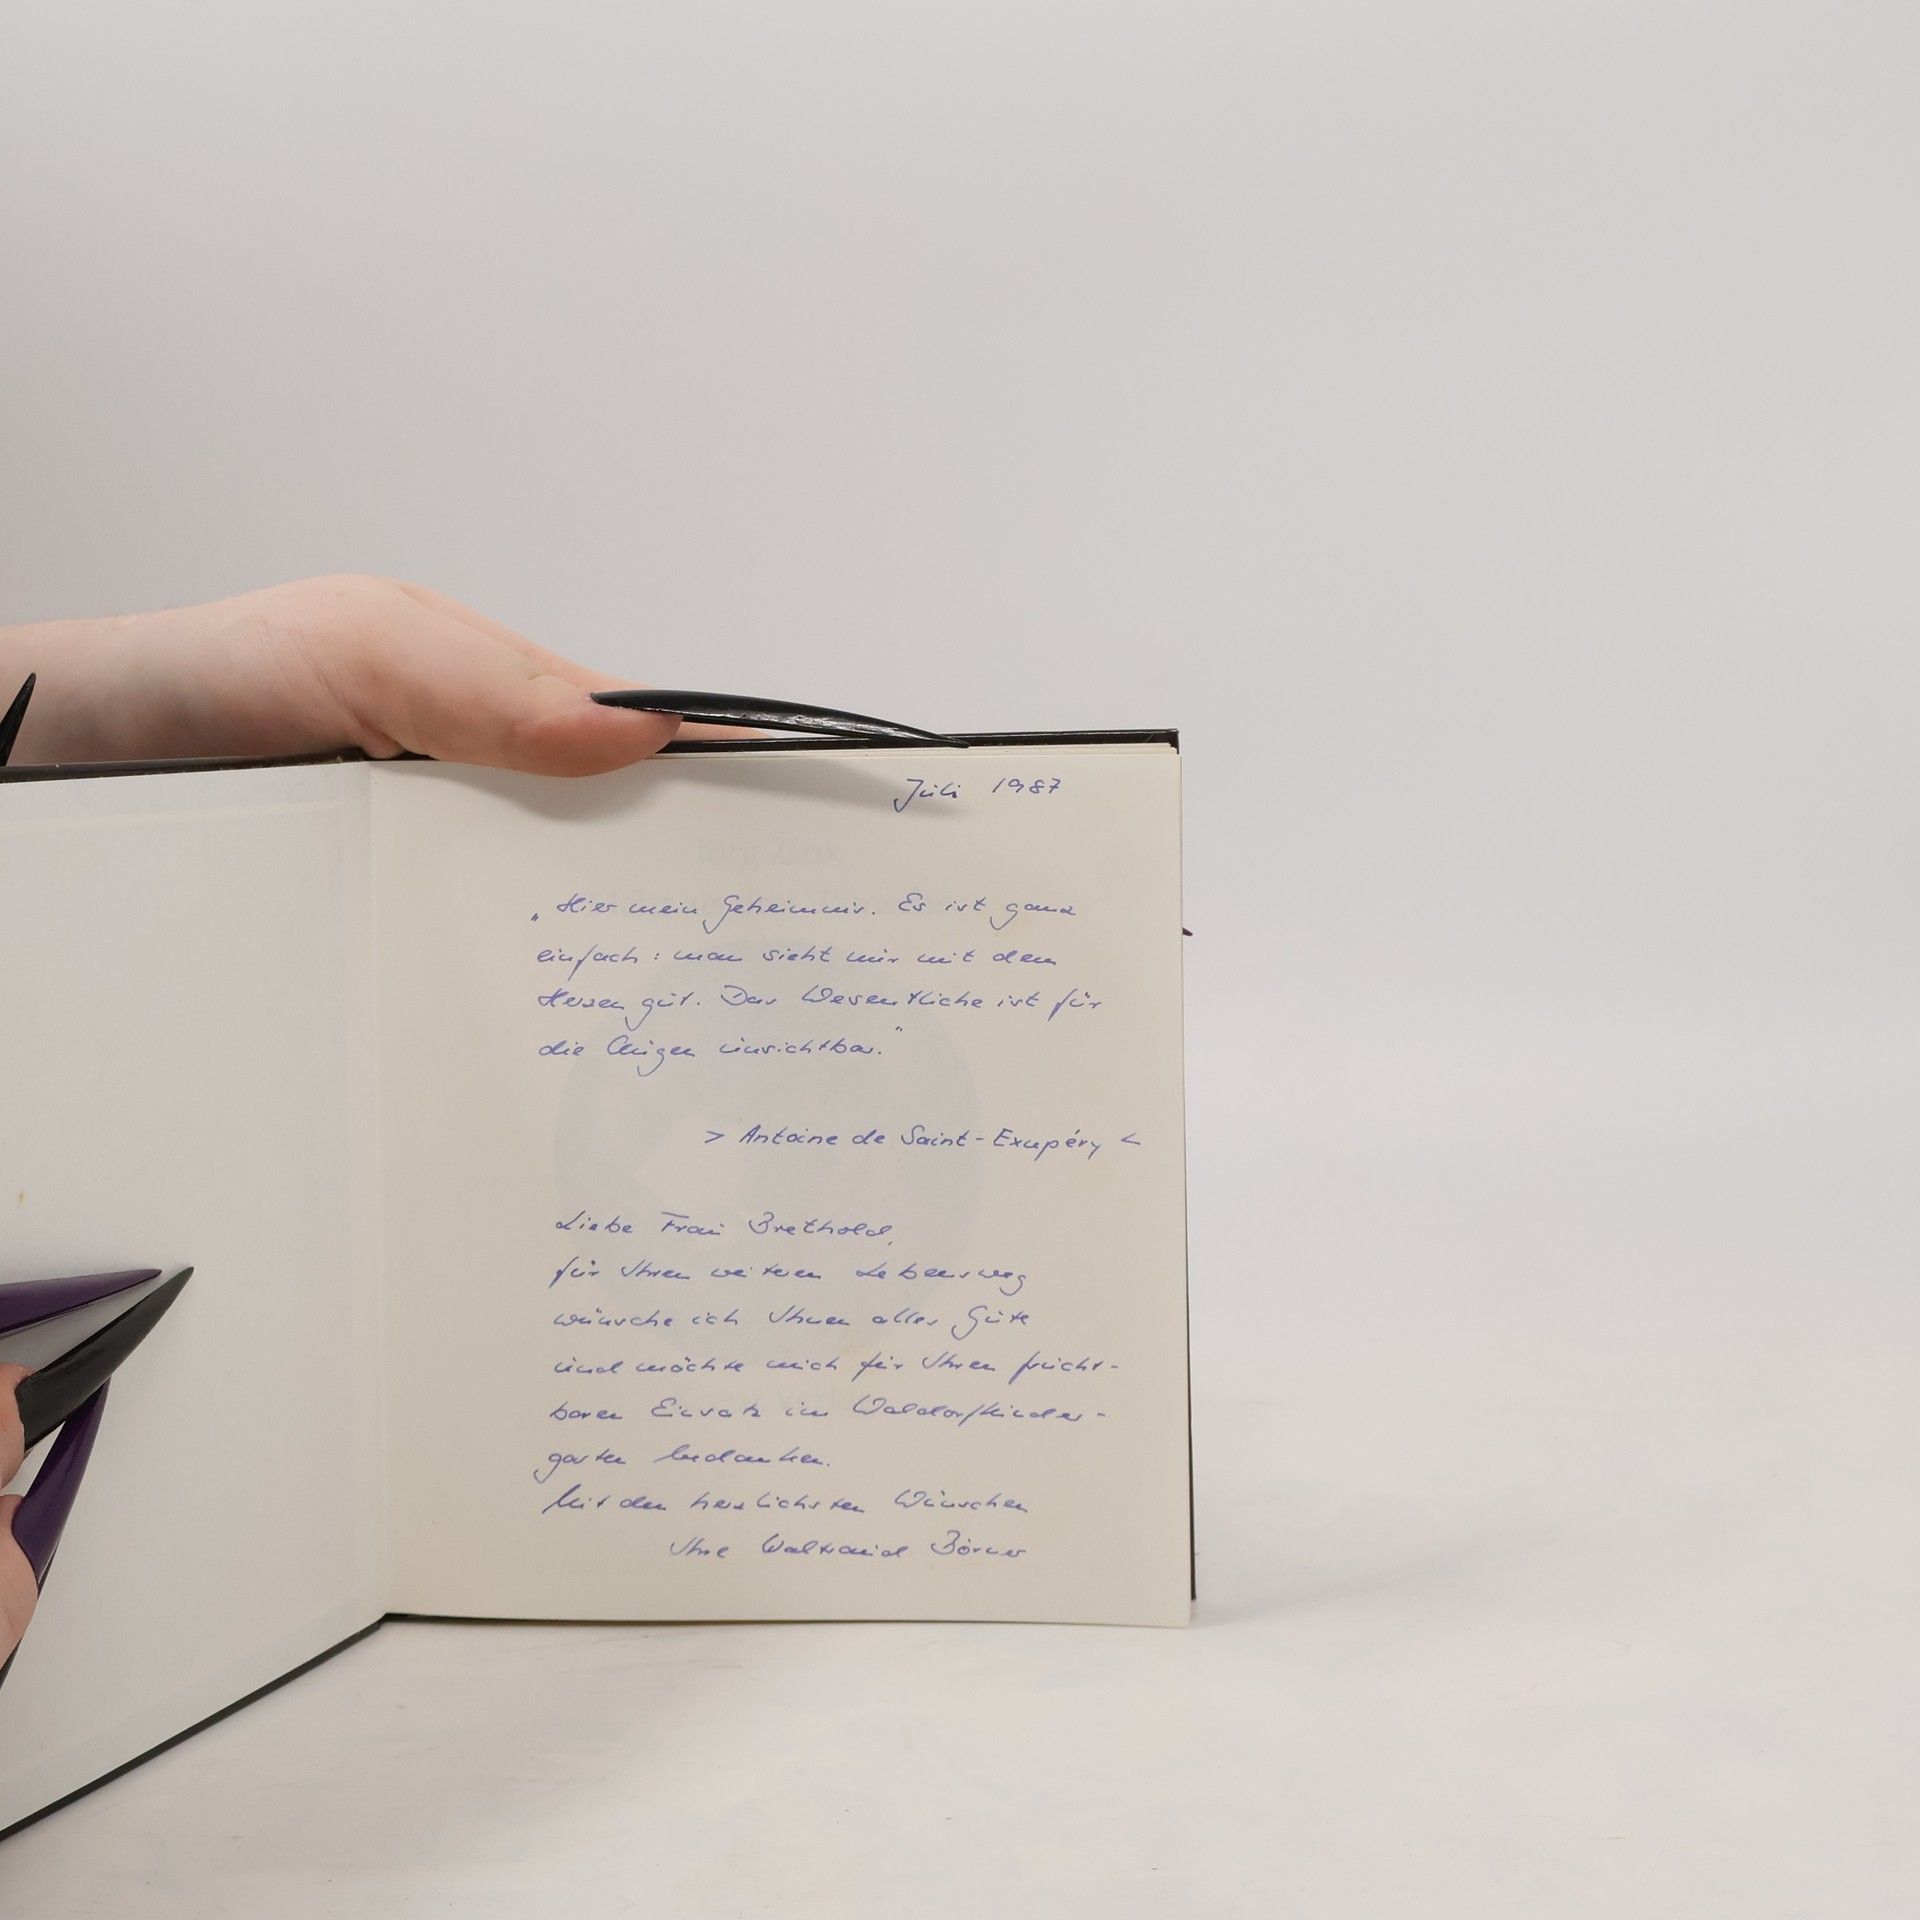 Juli 1987
Jörg Zink
„Hier mein Geheimnis. Es ist ganz
einfach: man sieht nur mit dem
Herzen gut. Das Wesentliche ist für
die Augen unsichtbar."
> Antoine de Saint-Exupéry <
Liebe Frau Brethold,
für Ihren weiteren Lebensweg
wünsche ich Ihnen alles Gute
und möchte mich für Ihren frucht-
baren Einsatz im Waldorfkinder-
garten bedanken.
Mit den herzlichsten Wünschen
Ihre Waltraud Börner